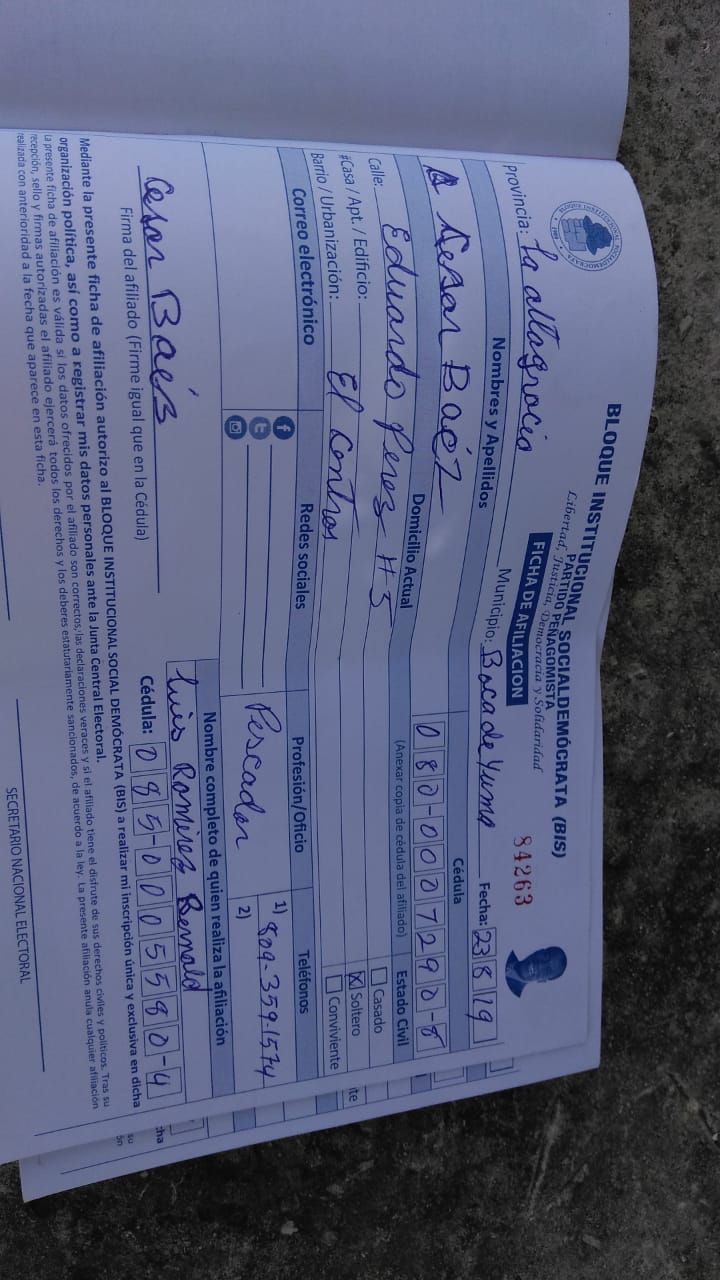 BLOQUE INSTITUCIONAL SOCIALDEMÓCRATA (BIS)
PARTIDO PEÑAGOMISTA
Libertad, Justicia, Democracia y Solidaridad
FICHA DE AFILIACION
84263
Provincia: La altagracia Municipio: Boca de Yuma Fecha: 23 8 19
Nombres y Apellidos Cédula
Cesar Baéz 080-0007290-8
(Anexar copia de cédula del afiliado)
Domicilio Actual Estado Civil
Calle: Eduardo Perez #5
Casado
#Casa / Apt. / Edificio: X Soltero
Barrio / Urbanización: El Centro Conviviente
Correo electrónico Redes sociales Profesión/Oficio Teléfonos
Pescador 1) 809-359-1574
2)
Nombre completo de quien realiza la afiliación
Luis Ramirez Ronald
Cesar Baéz
Firma del afiliado (Firme igual que en la Cédula) Cédula: 085-0005580-4
Mediante la presente ficha de afiliación autorizo al BLOQUE INSTITUCIONAL SOCIAL DEMÓCRATA (BIS) a realizar mi inscripción única y exclusiva en dicha
organización política, así como a registrar mis datos personales ante la Junta Central Electoral.
La presente ficha de afiliación es válida si los datos ofrecidos por el afiliado son correctos, las declaraciones veraces y si el afiliado tiene el disfrute de sus derechos civiles y políticos. Tras su
recepción, sello y firmas autorizadas el afiliado ejercerá todos los derechos y los deberes estatutariamente sancionados, de acuerdo a la ley. La presente afiliación anula cualquier afiliación
realizada con anterioridad a la fecha que aparece en esta ficha.
SECRETARIO NACIONAL ELECTORAL